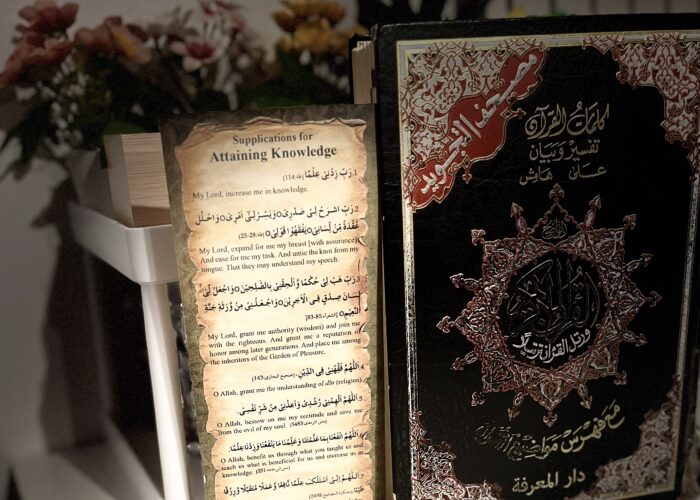 Supplications for
Attaining Knowledge
1. رَبِّ زِدْنِي عِلْمًا (طه:114)
My Lord, increase me in knowledge.
2. رَبِّ اشْرَحْ لِىْ صَدْرِىْ ○ وَيَسِّرْ لِىْٓ اَمْرِىْ ○ وَاحْلُلْ
عُقْدَةً مِّنْ لِّسَانِىْ ○ يَفْقَهُوْا قَوْلِىْ ○ (طه:28-25)
My Lord, expand for me my breast [with assurance]
And ease for me my task. And untie the knot from my
tongue. That they may understand my speech.
3. رَبِّ هَبْ لِىْ حُكْمًا وَّاَلْحِقْنِىْ بِالصّٰلِحِيْنَ ○ وَاجْعَلْ لِّىْ
لِسَانَ صِدْقٍ فِى الْاٰخِرِيْنَ ○ وَاجْعَلْنِىْ مِنْ وَّرَثَةِ جَنَّةِ
النَّعِيْمِ ○ (الشعراء:85-83)
My Lord, grant me authority (wisdom) and join me
with the righteous. And grant me a reputation of
honor among later generations. And place me among
the inheritors of the Garden of Pleasure.
4. اَللّٰهُمَّ فَقِّهْنِىْ فِى الدِّيْنِ. (صحيح البخارى:143)
O Allah, grant me the understanding of din (religion).
5. اَللّٰهُمَّ اَلْهِمْنِىْ رُشْدِىْ وَاَعِذْنِىْ مِنْ شَرِّ نَفْسِىْ.
O Allah, bestow on me my rectitude and save me
from the evil of my soul. (سنن الترمذى:3483)
6. اَللّٰهُمَّ انْفَعْنَا بِمَا عَلَّمْتَنَا وَعَلِّمْنَا مَا يَنْفَعُنَا وَزِدْنَا عِلْمًا.
O Allah, benefit us through what you taught us and
teach us what is beneficial for us and increase us in
knowledge.
7. اَللّٰهُمَّ اِنِّىْ اَسْئَلُكَ عِلْمًا نَافِعًا وَّعَمَلًا مُتَقَبَّلًا وَّرِزْقًا
طَيِّبًا.
مصحف التجويد
كلمات القرآن
تفسير وبيان
على هامش
القرآن
ورتل القرآن ترتيلا
مع فهرس
دار المعرفة